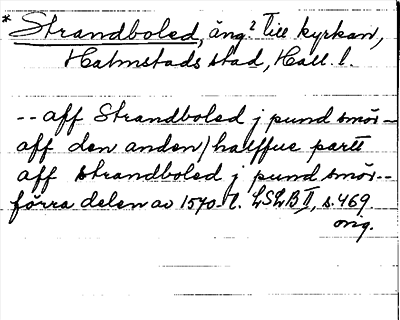 * Strandboled, äng? till kyrkan,
Halmstads stad, Hall. l.
-- aff Strandboled j pund smör --
aff den anden / halffue partt
aff strandboled j pund smör --
förra delen av 1570-t. LSLB II, s. 469.
orig.